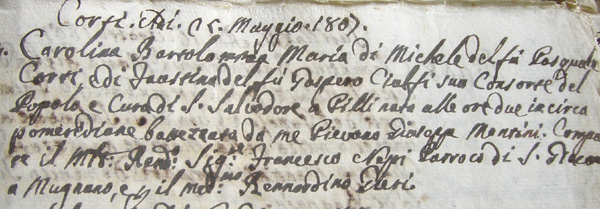 Corsi. Adi. 25. Maggio. 1807.
Carolina Bartolomea Maria di Michele del fù Pasquale
Corsi, e di Faustina del fù Gaspero Cialfi sua Consorte del
Popolo, e Cura di S. Salvadore a Pilli nata alle ore due in circa
pomeridiane battezzata da me Pievano Giuseppe Montini. Compa
re il Mto. Rendo. Sigre. Francesco Nepi Parroco di S. Giovanni
a Mugnano, e il medmo. Bennardino Pieri.